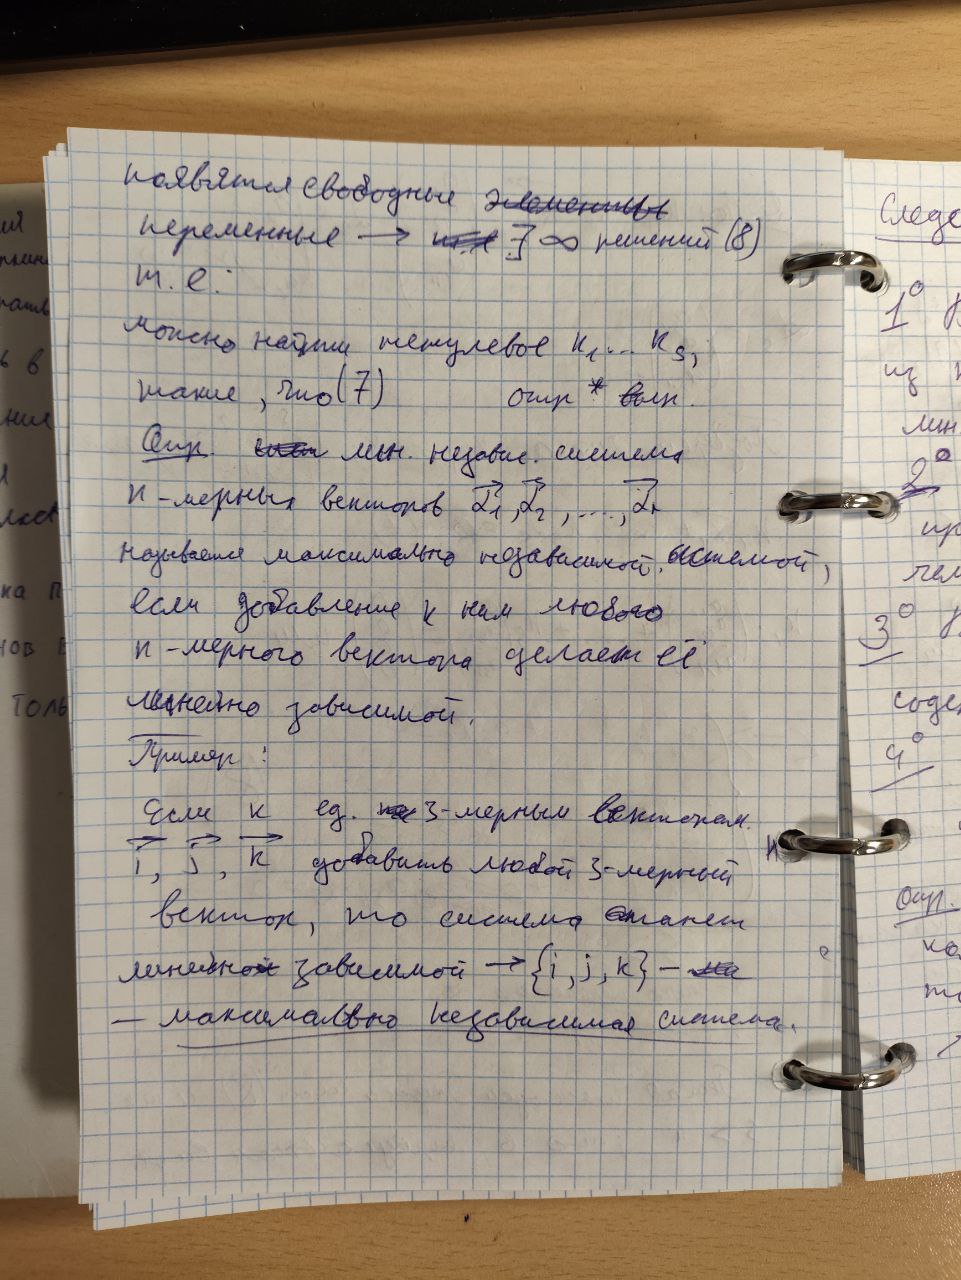 появятся свободные элементы
переменные → ∃ ∞ решений (8)
т. е.:
можно найти ненулевое k₁ ... k₅,
такие, что (7) опр * вып.
Опр. лин. независ. система
n-мерных векторов α₁, α₂, ...., αᵣ
называется максимально независимой системой,
если добавление к ним любого
n-мерного вектора делает её
линейно зависимой.
Пример:
Если к ед. 3-мерным векторам
i, j, k добавить любой 3-мерный
вектор, то система станет
линейной зависимой → {i, j, k} –
– максимально независимая система.
Следс
1°
из
лин.
2°
пр
чем
3°
содер
4°
Опр.
ка П
толь